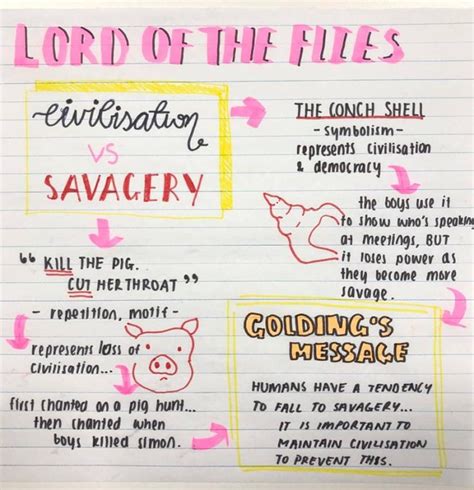 LORD OF THE FLIES
civilisation
VS
SAVAGERY
THE CONCH SHELL
- symbolism -
represents civilisation
& democracy
the boys use it
to show who's speaking
at meetings, BUT
it loses power as
they become more
savage.
" KILL THE PIG.
CUT HER THROAT "
- repetition, motif -
represents loss of
civilisation...
first chanted on a pig hunt...
then chanted when
boys killed simon.
GOLDING'S
MESSAGE
HUMANS HAVE A TENDENCY
TO FALL TO SAVAGERY...
IT IS IMPORTANT TO
MAINTAIN CIVILISATION
TO PREVENT THIS.